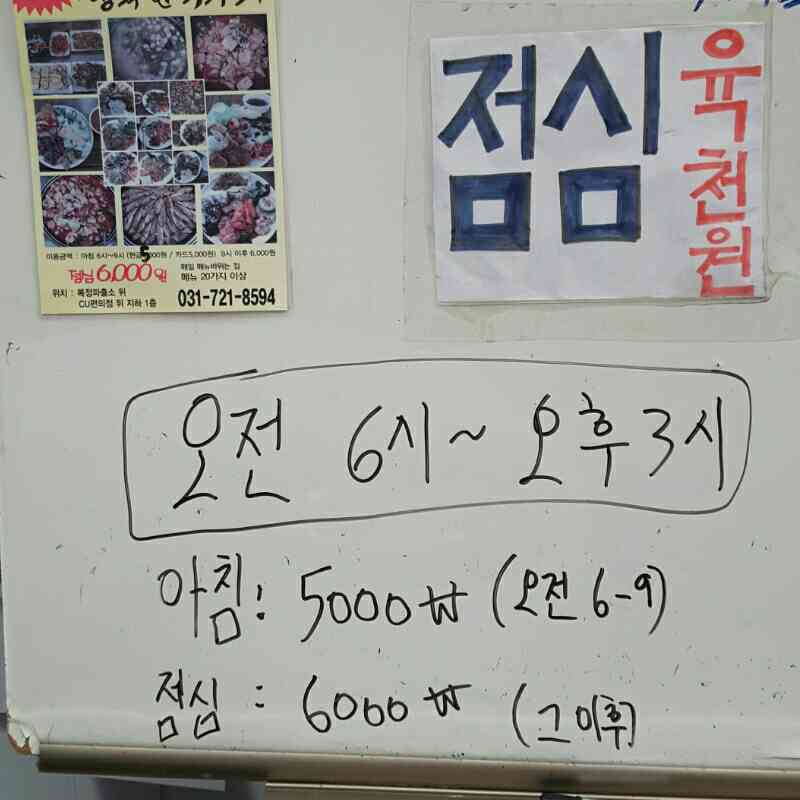 이용금액 : 아침 6시~9시 (현금5,000원 / 카드5,000원) 9시 이후 6,000원
점심 6,000원
매일 메뉴바뀌는 집
메뉴 20가지 이상
위치 : 복정파출소 뒤
CU편의점 뒤 지하 1층
031-721-8594
점심
육천원
오전 6시~오후3시
아침: 5000₩ (오전 6-9)
점심 : 6000₩ (그 이후)